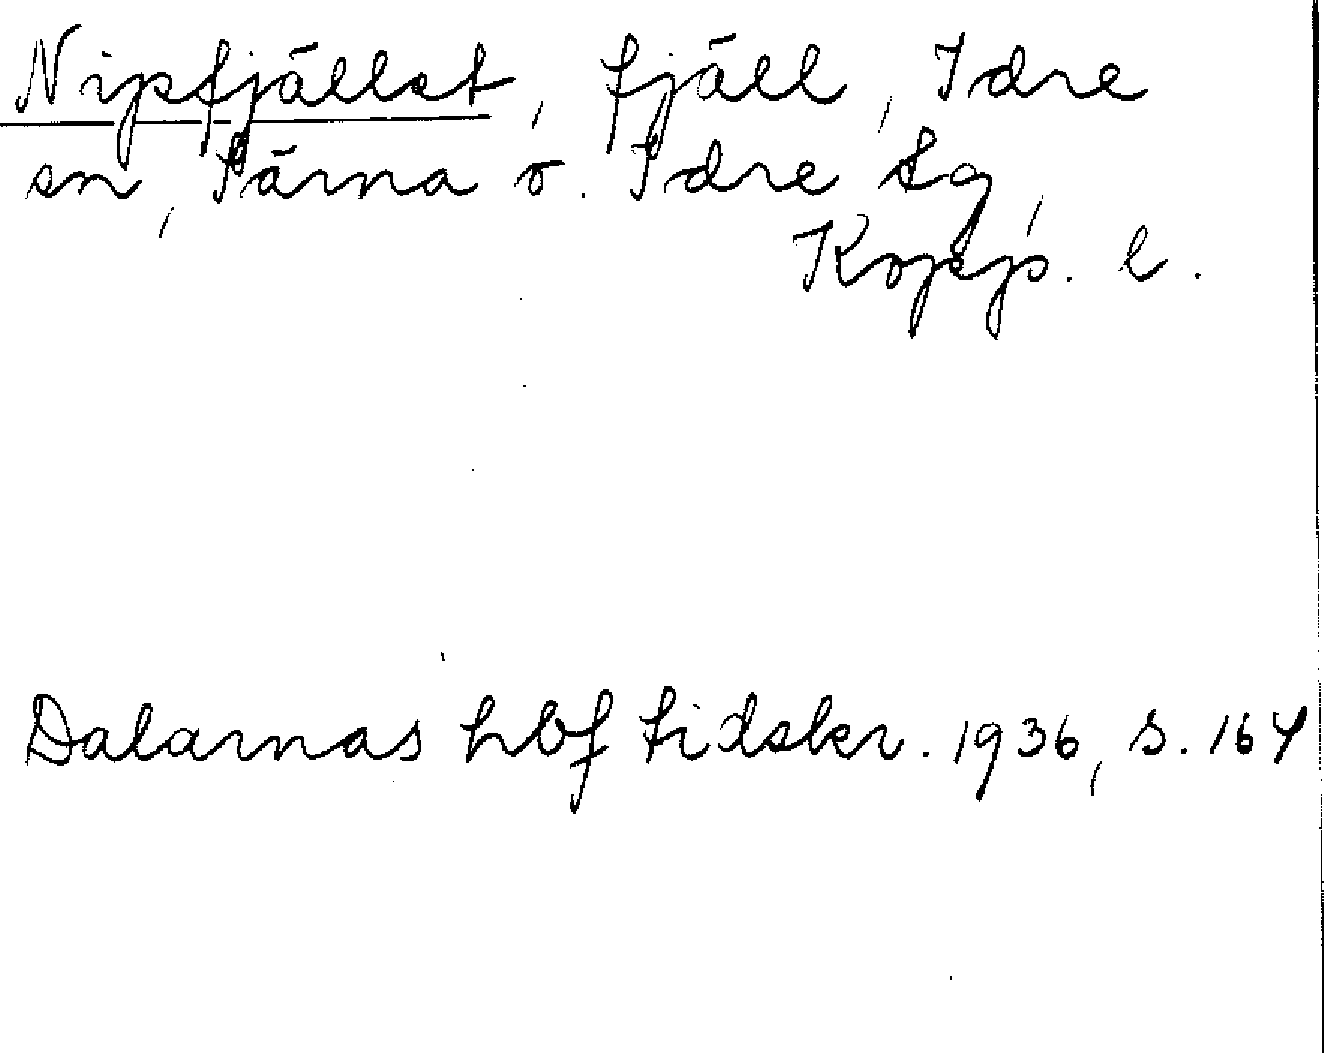 Nipfjället, fjäll, Idre
sn, Särna o. Idre tg,
Kopp. l.
Dalarnas hbf tidskr. 1936, s. 164